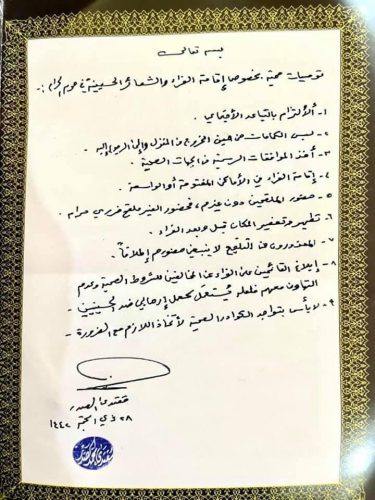 بسمه تعالى
توصيات صحية بخصوص إقامة العزاء والشعائر الحسينية في محرم الحرام :-
١- الالتزام بالتباعد الاجتماعي.
٢- لبس الكمامات من حين الخروج من المنزل وإلى الرجوع إليه.
٣- أخذ الموافقات الرسمية من الجهات الصحية.
٤- إقامة العزاء في الأماكن المفتوحة أو الواسعة.
٥- حضور الملقحين دون غيرهم، فحضور الغير ملقح فردي حرام
٦- تطهير وتعفير المكان قبل وبعد العزاء.
٧- المعذورون من التلقيح لا ينبغي حضورهم إطلاقاً.
٨- إبلاغ القائمين على العزاء عن المخالفين للشروط الصحية وعدم
التهاون معهم فلعله يُستغل بعمل إرهابي ضد الحسينيين
٩- لا بأس بتواجد الكوادر الصحية لاتخاذ اللازم مع الضرورة -
مقتدى الصدر
٢٨ ذي الحجة ١٤٤٢